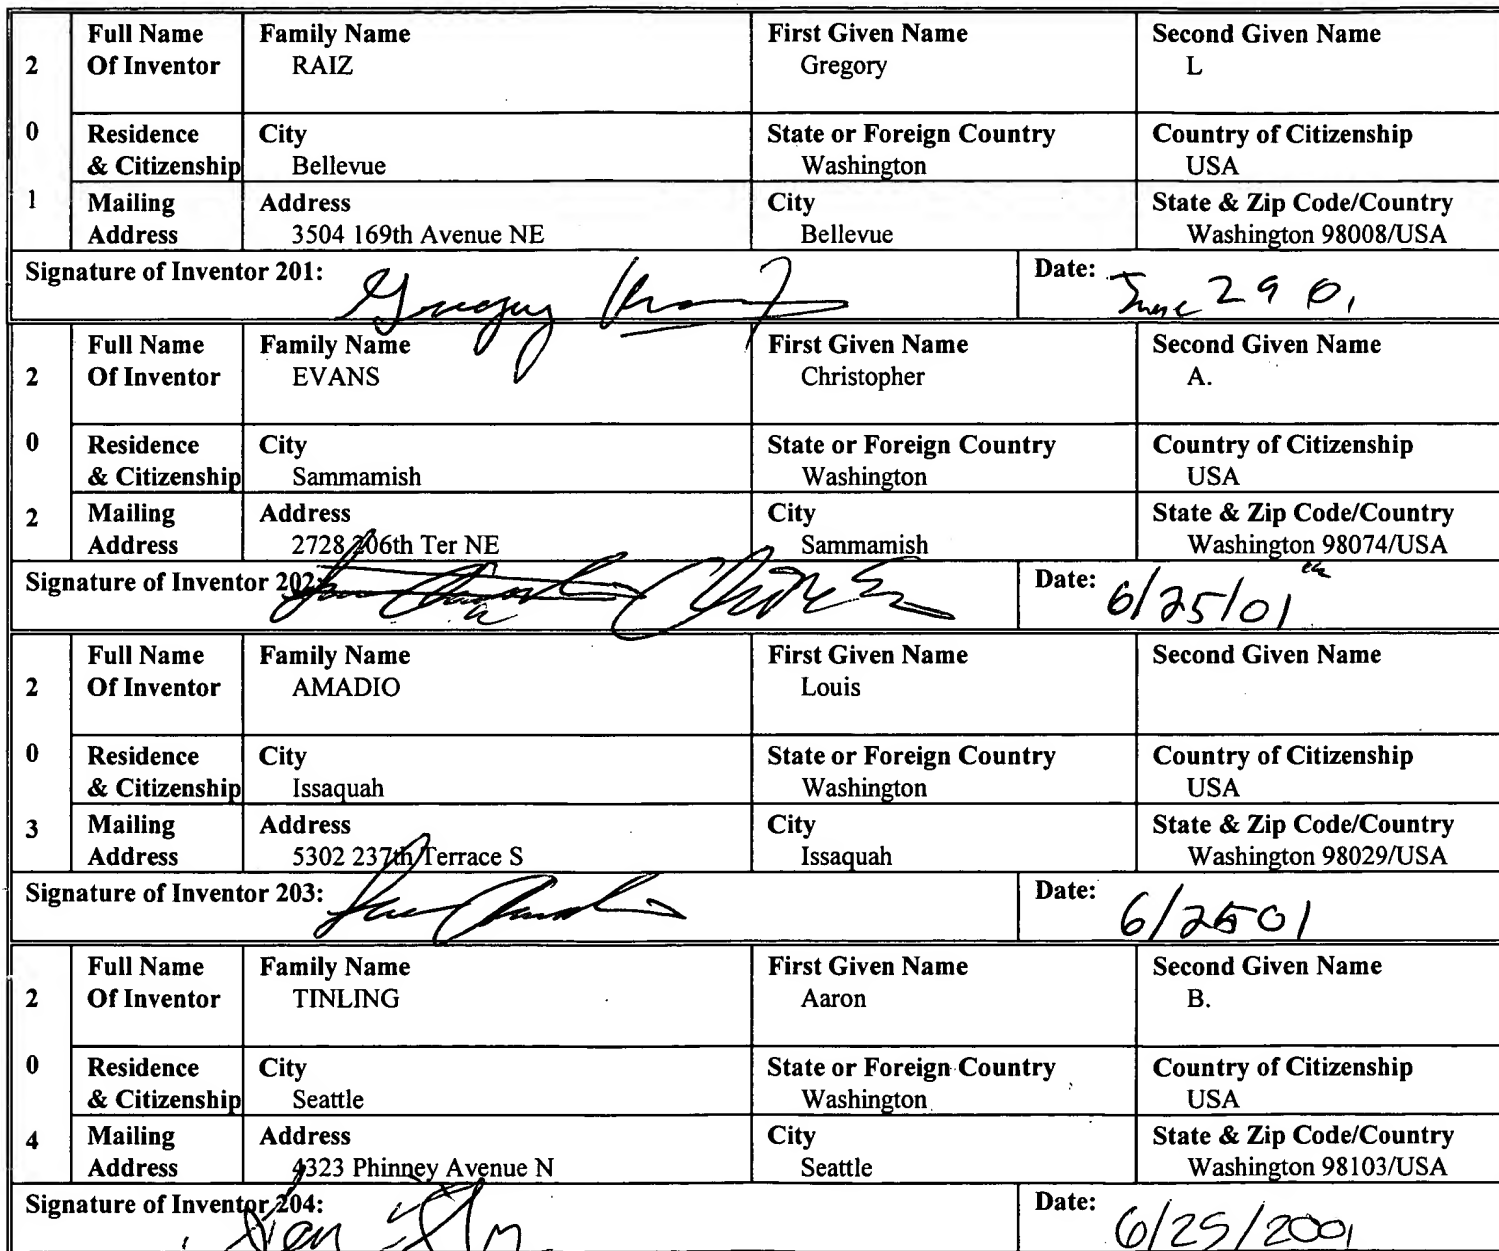 2 0 1
Full Name Of Inventor
Family Name
RAIZ
First Given Name
Gregory
Second Given Name
L
Residence & Citizenship
City
Bellevue
State or Foreign Country
Washington
Country of Citizenship
USA
Mailing Address
Address
3504 169th Avenue NE
City
Bellevue
State & Zip Code/Country
Washington 98008/USA
Signature of Inventor 201:
Gregory
Date: June 29 01
2 0 2
Full Name Of Inventor
Family Name
EVANS
First Given Name
Christopher
Second Given Name
A.
Residence & Citizenship
City
Sammamish
State or Foreign Country
Washington
Country of Citizenship
USA
Mailing Address
Address
2728 206th Ter NE
City
Sammamish
State & Zip Code/Country
Washington 98074/USA
Signature of Inventor 202:
Date: 6/25/01
2 0 3
Full Name Of Inventor
Family Name
AMADIO
First Given Name
Louis
Second Given Name
Residence & Citizenship
City
Issaquah
State or Foreign Country
Washington
Country of Citizenship
USA
Mailing Address
Address
5302 237th Terrace S
City
Issaquah
State & Zip Code/Country
Washington 98029/USA
Signature of Inventor 203:
Date: 6/2501
2 0 4
Full Name Of Inventor
Family Name
TINLING
First Given Name
Aaron
Second Given Name
B.
Residence & Citizenship
City
Seattle
State or Foreign Country
Washington
Country of Citizenship
USA
Mailing Address
Address
4323 Phinney Avenue N
City
Seattle
State & Zip Code/Country
Washington 98103/USA
Signature of Inventor 204:
Date: 6/25/2001